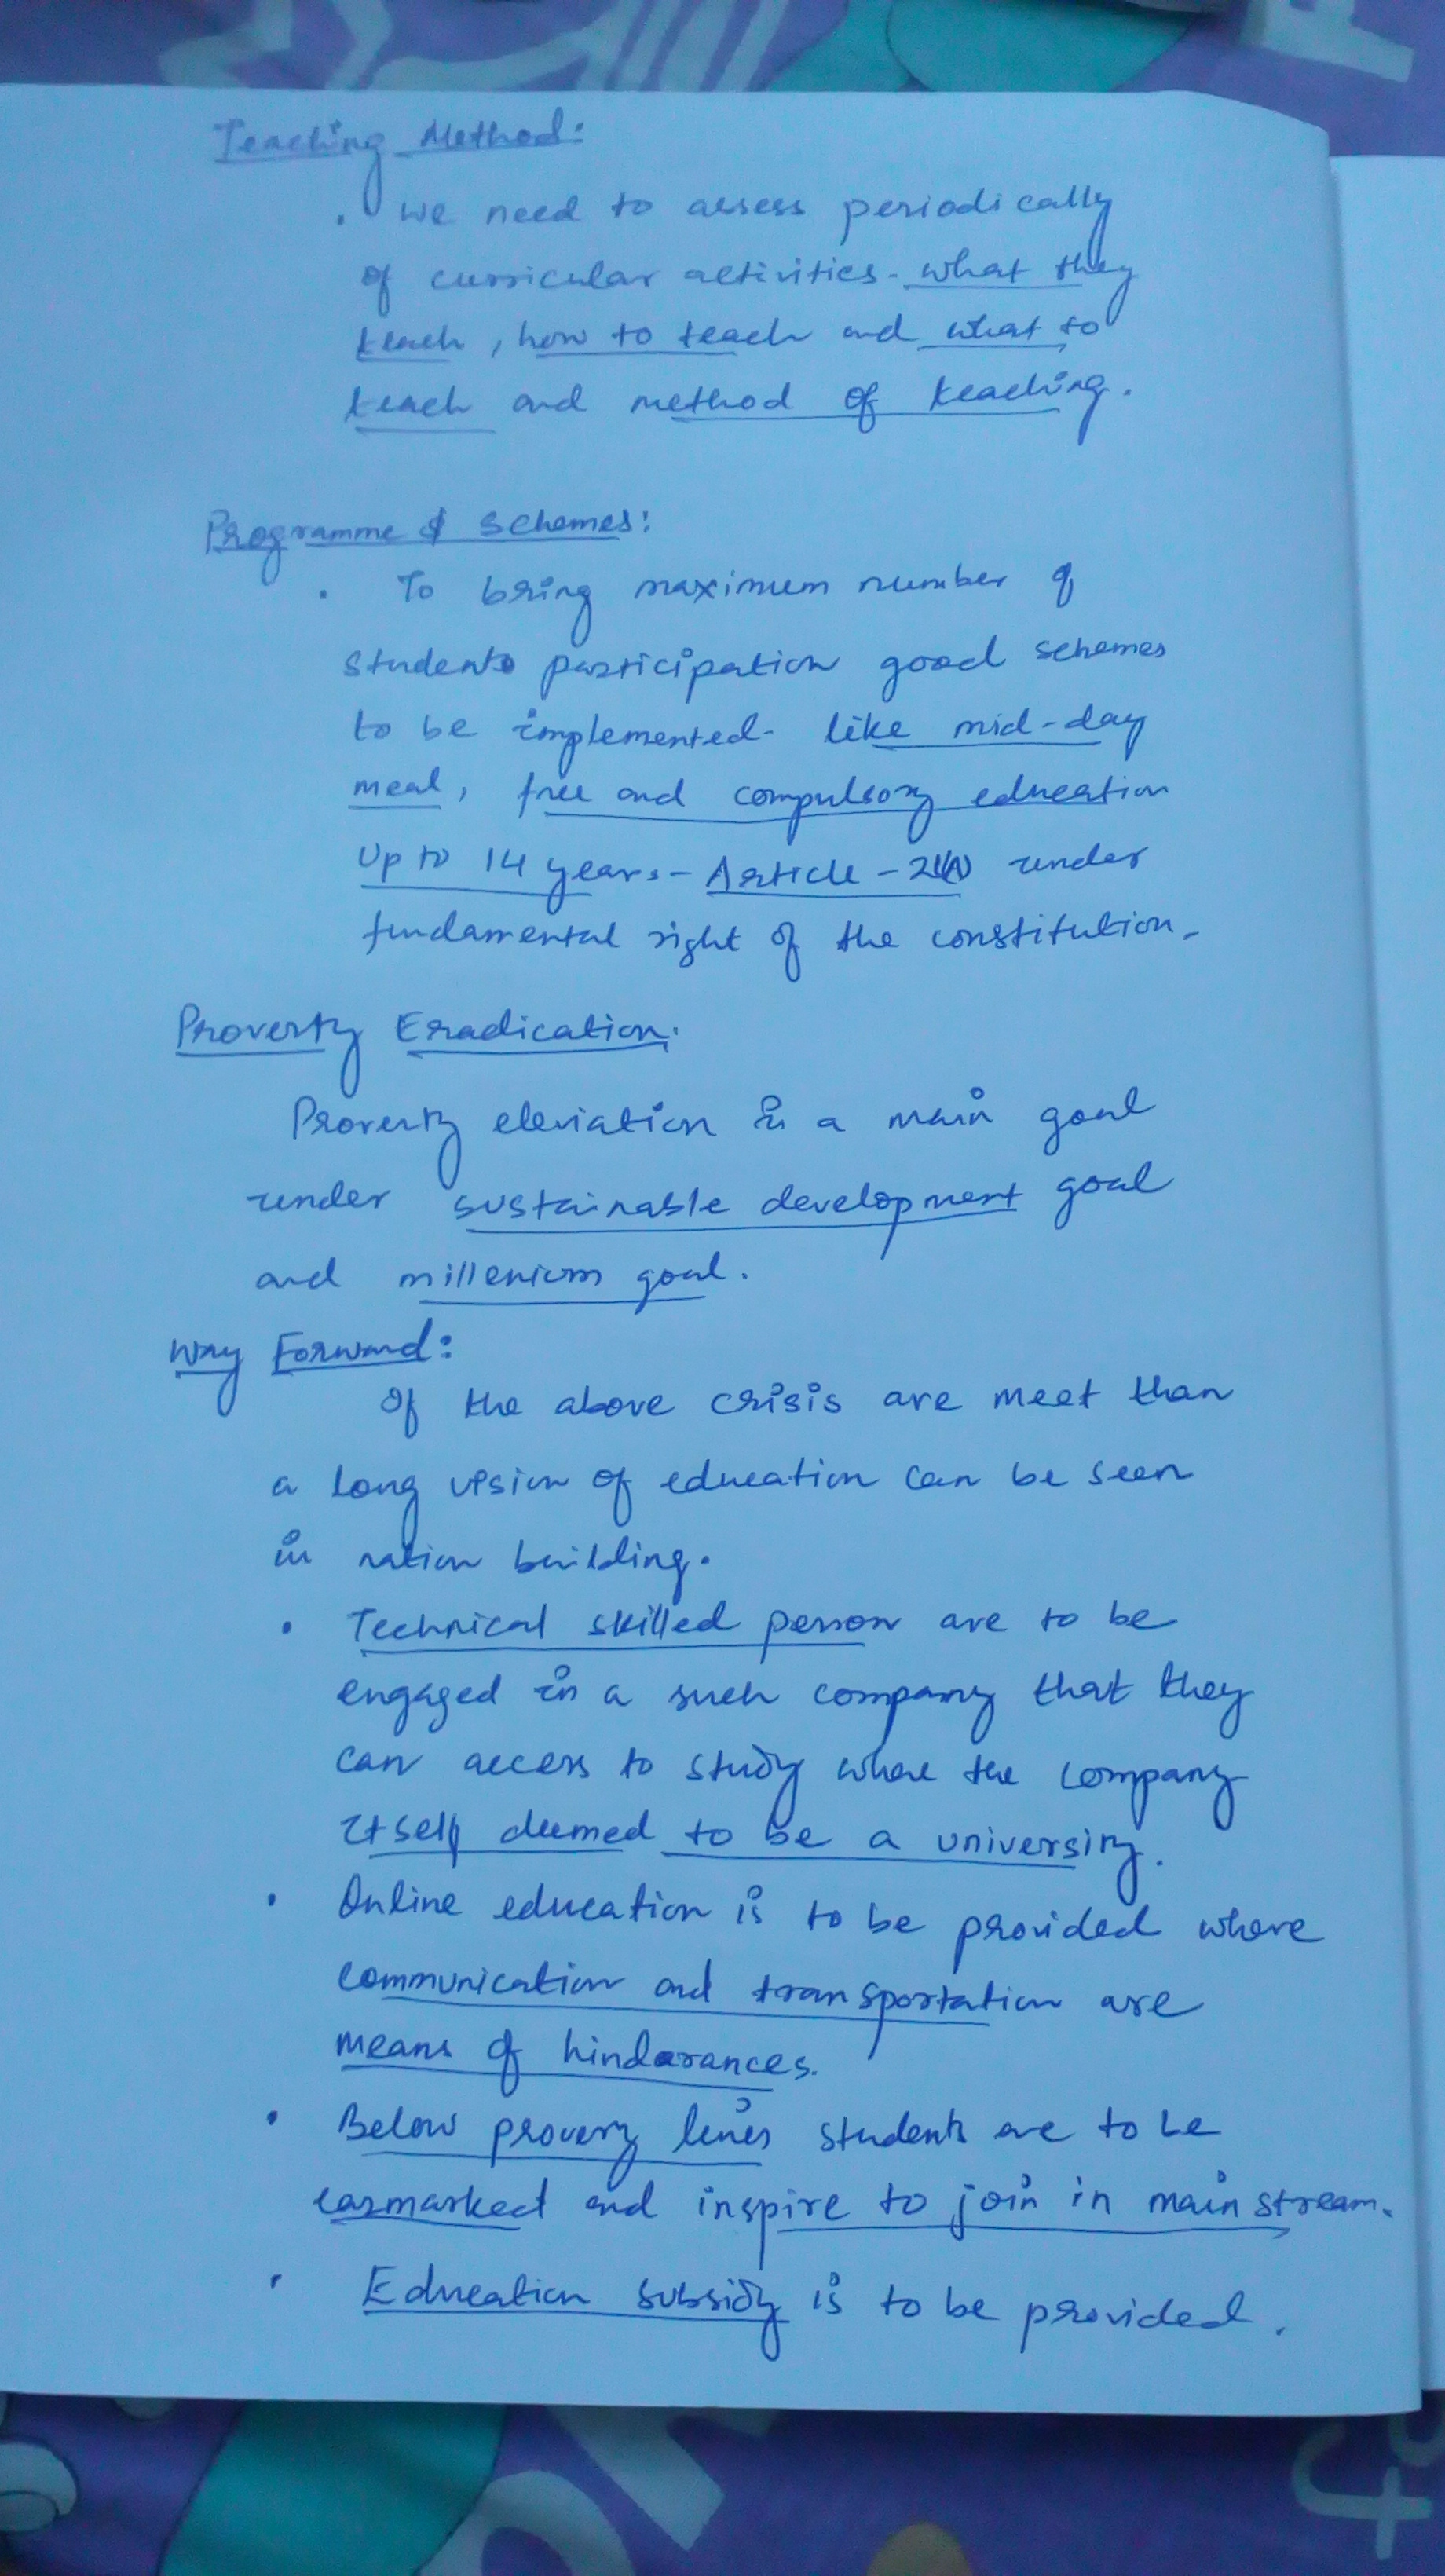 Teaching Method:
. We need to assess periodically
of curricular activities - what they
teach, how to teach and what to
teach and method of teaching.
Programme & Schemes:
. To bring maximum number of
students participation good schemes
to be implemented - like mid-day
meal, free and compulsory education
Up to 14 years - Article - 21(A) under
fundamental right of the constitution.
Proverty Eradication.
Proverty eleviation is a main goal
under sustainable development goal
and millenium goal.
Way Forward:
Of the above crisis are meet than
a long vision of education can be seen
in nation building.
. Technical skilled person are to be
engaged in a such company that they
can access to study where the company
itself deemed to be a university.
. Online education is to be provided where
communication and transportation are
means of hindarances.
. Below proverty lines students are to be
earmarked and inspire to join in main stream.
. Education subsidy is to be provided.